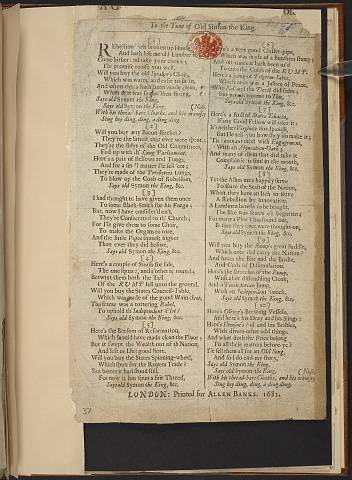 To the Tune of Old Simon the King.
[1]
Rebellion hath broken up House,
And hath left me old Lumber to
Come hither and take your choice,
I'le promise to use you well.
Will you buy the old Speaker's Chair,
Which was warm, and easie to sit in,
And often hath been made clean,
When as it was
Says old Simon the King,
Says old Simon the King,
With his thread-bare Cloaths, and his
Sing hey ding, ding, a ding ding.
[2]
Will you buy any Bacon-flitches?
They're the fattest that ever were spent;
They're the sides of the Old Committees,
Fed up with th' Long Parliament.
Here's a pair of Bellows and Tongs,
And for a small matter I'le sell 'um;
They're made of the Presbyters Lungs,
To blow up the Coals of Rebellion,
Says old Symon the King, &c.
[3]
I had thought to have given them once
To some Black-Smith for his Forge;
But, now I have consider'd on't,
They're Consecrated to th' Church;
For I'le give them to some Quire,
To make the Organs to rore,
And the little Pipes squeak higher
Than ever they did before,
Says old Symon the King, &c.
[4]
Here's a couple of Stools for sale,
The one square, and t'other is round;
Betwixt them both the Tail
Of the RUMP fell unto the ground.
Will you buy the States Council-Table,
Which was made of the good Wain-Scot;
The frame was a tottering Babel,
To uphold th' Independent Plot?
Says old Symon the King, &c.
[5]
Here's the Beesom of Reformation,
Which should have made clean the Floor;
But it swept the Wealth out of th' Nation,
And left us Dirt good store.
Will you buy the States Spinning-wheel,
Which spun for the Ropers Trade?
But better it had stood still,
For now it has spun a fair Threed,
Says old Symon the King, &c.
[6]
Here's a very good Clyster-pipe,
Which was made of a Butchers stump;
And oft-times it hath been us'd
To cure the colds of the RUMP.
Here's a lump of Pilgrims-Salve,
Which once was a Justice of Peace,
Who Nol and the Devil did serve;
But now it is come to This.
Says old Symon the King, &c.
[7]
Here's a Roll of States Tobacco,
If any Good Fellow will take it;
It's neither Virginia nor Spanish,
But I'le tell you how they do make it;
'Tis Covenant mixt with Engagement,
With an Abjuration-Oath;
And many of them that did take it
Complain it is foul in the mouth,
Says old Symon the King, &c.
[8]
Yet the Ashes may happily serve
To cure the Scab of the Nation,
When they have an Itch to serve
A Rebellion by Innovation.
A Lanthorn here is to be bought,
The like was scarce e'r begotten;
For many a Plot 't has found out,
Before they ever were thought-on,
Says old Symon the King, &c.
[9]
Will you buy the Rump's great Saddle,
Which once did carry the Nation?
And here's the Bitt and the Bridle,
And Curb of Dissimulation.
Here's the Breeches of the Rump,
With a fair dissembling Cloak,
And a Presbyterian Jump,
With an Independent Smock,
Says old Symon the King, &c.
[10]
Here's Oliver's Brewing-Vessels,
And here's his Dray and his Slings:
Here's Hewson's Awl and his Bristles,
With divers other odd things.
And what doth the Price belong
To all these matters before ye?
I'le sell them all for an Old Song,
And so I do end my story,
Says old Symon the King,
Says old Symon the King,
With his thread-bare Cloaths, and his
Sing hey ding, ding, a ding ding.
LONDON: Printed for ALLEN BANKS. 1682.
37